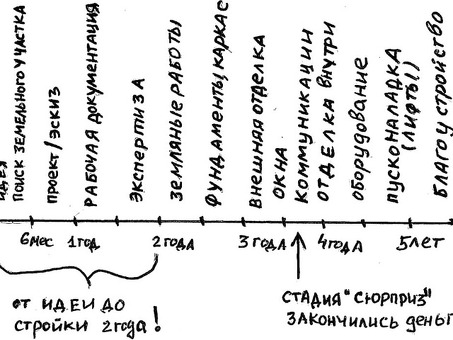 идея
поиск земельного участка
проект/эскиз
Рабочая документация
экспертиза
земляные работы
фундаменты, каркас
внешняя отделка
окна
коммуникации
отделка внутри
оборудование
пусконаладка
(лифты)
благоустройство
6мес
1год
2года
3года
4года
5лет
от идеи до
стройки 2года!
стадия "сюрприз"
закончились деньг